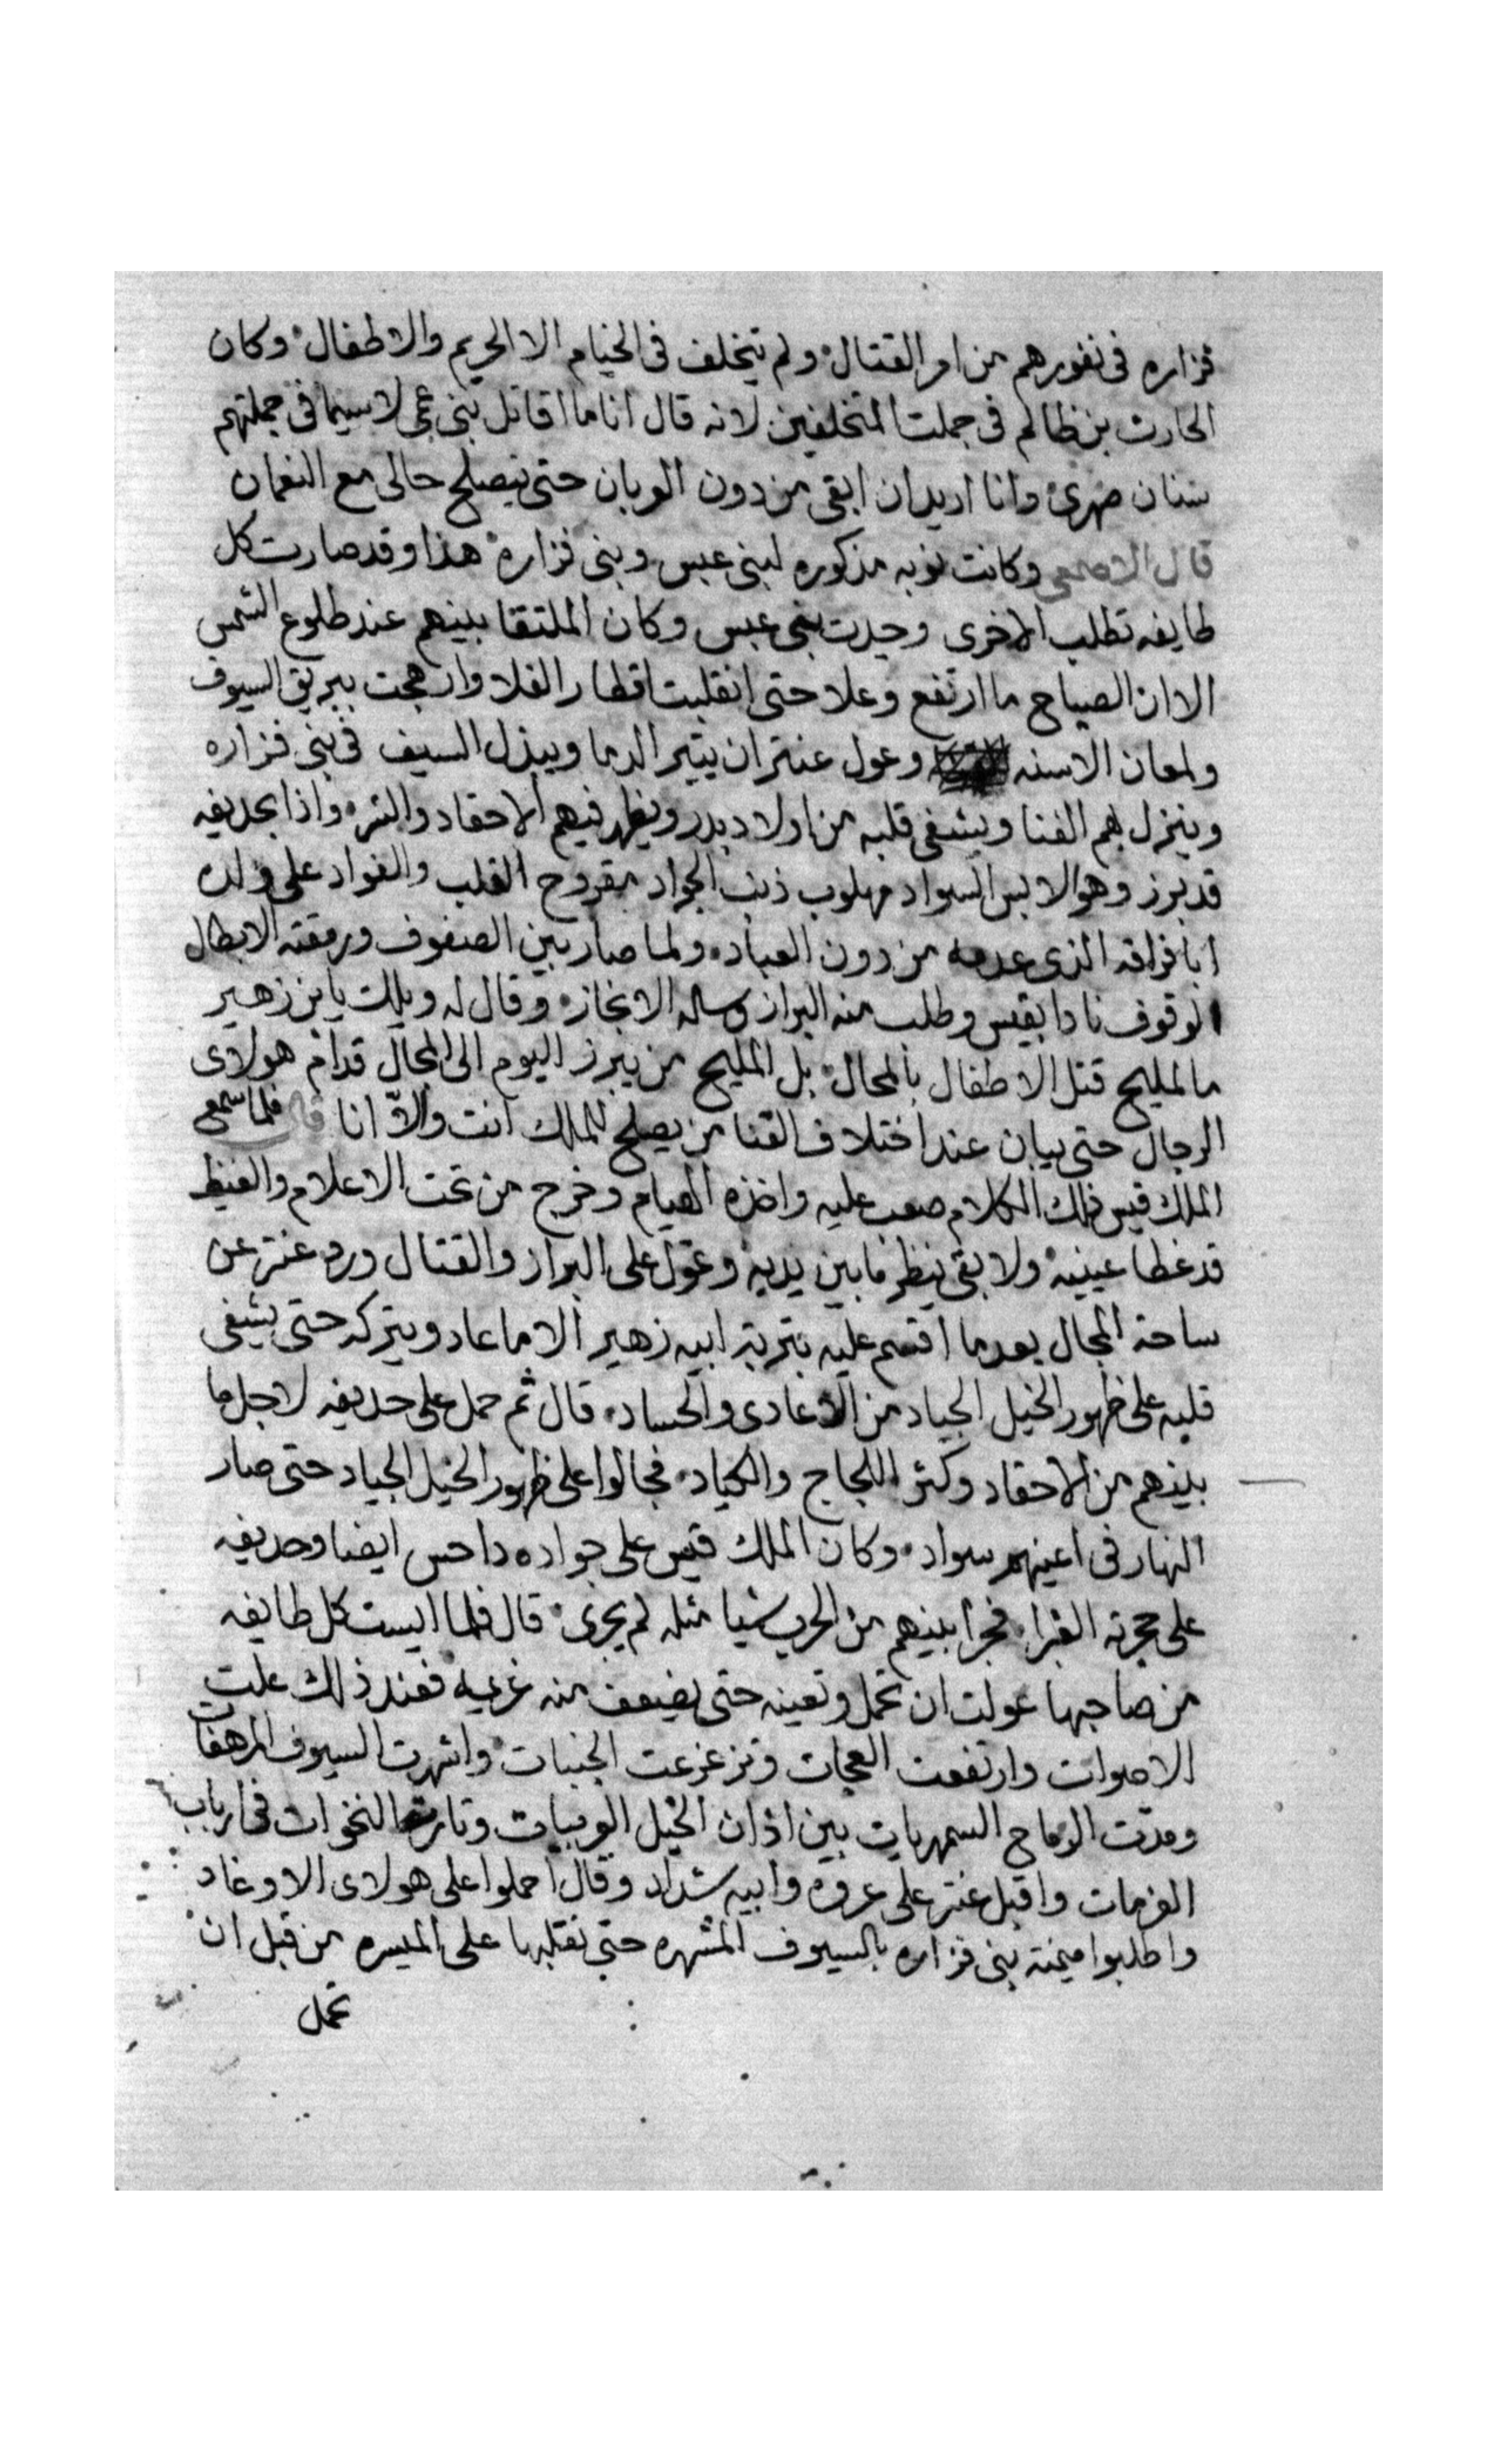 فزاره فى نفورهم من امر القتال ولم يتخلف فى الخيام الا الحريم والاطفال وكان
الحارث بن ظالم فى جملت المتخلفين لانه قال انا ما اقاتل بنى عمى لا سيما فى جملتهم
سنان صهرى وانا اريد ان ابقى من دون العربان حتى ينصلح حالى مع النعمان
قال الاصمعى وكانت نوبه مذكوره لبنى عبس وبنى فزاره هذا وقد صارت كل
طايفه تطلب الاخرى وجدت بنى عبس وكان الملتقا بينهم عند طلوع الشمس
الا ان الصياح ما ارتفع وعلا حتى انقلبت اقطار الفلا وارهجت ببريق السيوف
ولمعان الاسنه وعول عنتر ان يثير الدما ويبذل السيف فى بنى فزاره
وينزل بهم الفنا ويشفى قلبه من اولاد بدر ويظهر فيهم الاحقاد والشر واذا بحديفه
قد برز وهو لابس السواد مهلوب ذنب الجواد مقروح القلب والفواد على ولده
ابا فراقه الذى عدمه من دون العباد ولما صار بين الصفوف ورمقته الابطال
الوقوف نادا بقيس وطلب منه البراز وساله الانجاز وقال له ويلك يابن زهير
ما لمليح قتل الاطفال بالمحال بل المليح من يبرز اليوم الى المجال قدام هولاى
الرجال حتى يبان عند اختلاف القنا من يصلح للملك انت والا انا قال فلما سمع
الملك قيس ذلك الكلام صعب عليه واخذه الهيام وخرج من تحت الاعلام والغيظ
قد غطا عينيه ولا بقى ينظر ما بين يديه وعول على البراز والقتال ورد عنتر عن
ساحة المجال بعدما اقسم عليه بتربة ابيه زهير الا ما عاد ويتركه حتى يشفى
قلبه على ظهور الخيل الجياد من الاعادى والحساد قال ثم حمل على حديفه لاجل ما
بينهم من الاحقاد وكثر اللجاج والكياد فجالوا على ظهور الخيل الجياد حتى صار
النهار فى اعينهم سواد وكان الملك قيس على جواده داحس ايضا وحديفه
على حجرته الغبرا فجرا بينهم من الحرب شيا مثله لم يجرى قال فلما ايست كل طايفه
من صاحبها عولت ان تحمل وتعينه حتى يضعف منه غريمه فعند ذلك علت
الاصوات وارتفعت العجات وتزعزعت الجنبات واشهرت السيوف المرهفات
ومدت الرماح السمهريات بين اذان الخيل العربيات وثارت النخوات فى ارباب
العزمات واقبل عنتر على عروه وابيه شداد وقال احملوا على هولاى الاوغاد
واطلبوا ميمنة بنى فزاره بالسيوف المشهره حتى نقلبها على الميسره من قبل ان
تحمل